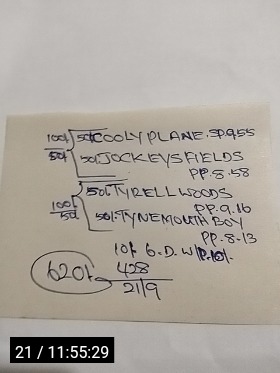 100/- 50/- COOLY PLANE. SP 9.55
50/- 50/- JOCKEYSFIELDS
PP. 8.58
50/- TYRELL WOODS
100/- PP. 9.10
50/- 50/- TYNEMOUTH BOY
PP. 8.13
10/- G.D. W/
620/- 428
21/9
21 / 11:55:29